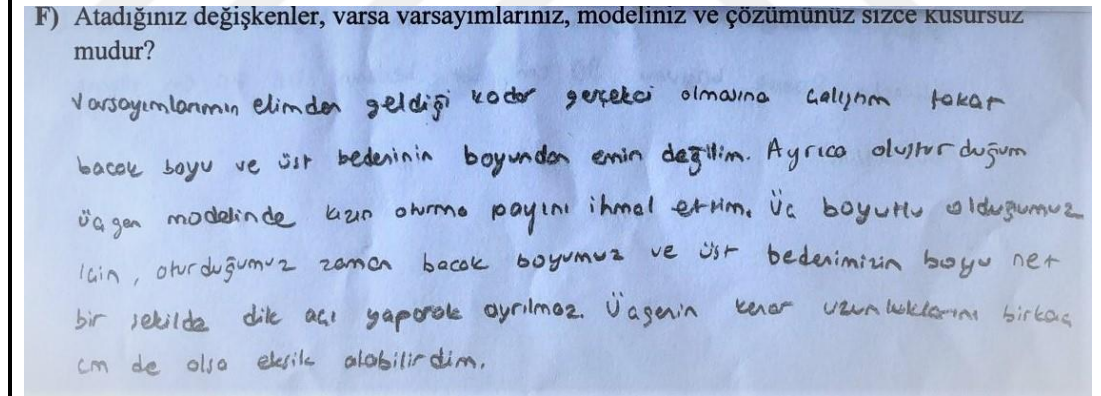 F) Atadığınız değişkenler, varsa varsayımlarınız, modeliniz ve çözümünüz sizce kusursuz
mudur?
Varsayımlarımın elimden geldiği kadar gerçekçi olmasına çalıştım fakat
bacak boyu ve üst bedeninin boyundan emin değilim. Ayrıca oluşturduğum
üçgen modelinde kızın oturma payını ihmal ettim. Üç boyutlu olduğumuz
için, oturduğumuz zaman bacak boyumuz ve üst bedenimizin boyu net
bir şekilde dik açı yaparak ayrılmaz. Üçgenin kenar uzunluklarını birkaç
cm de olsa eksik alabilirdim.